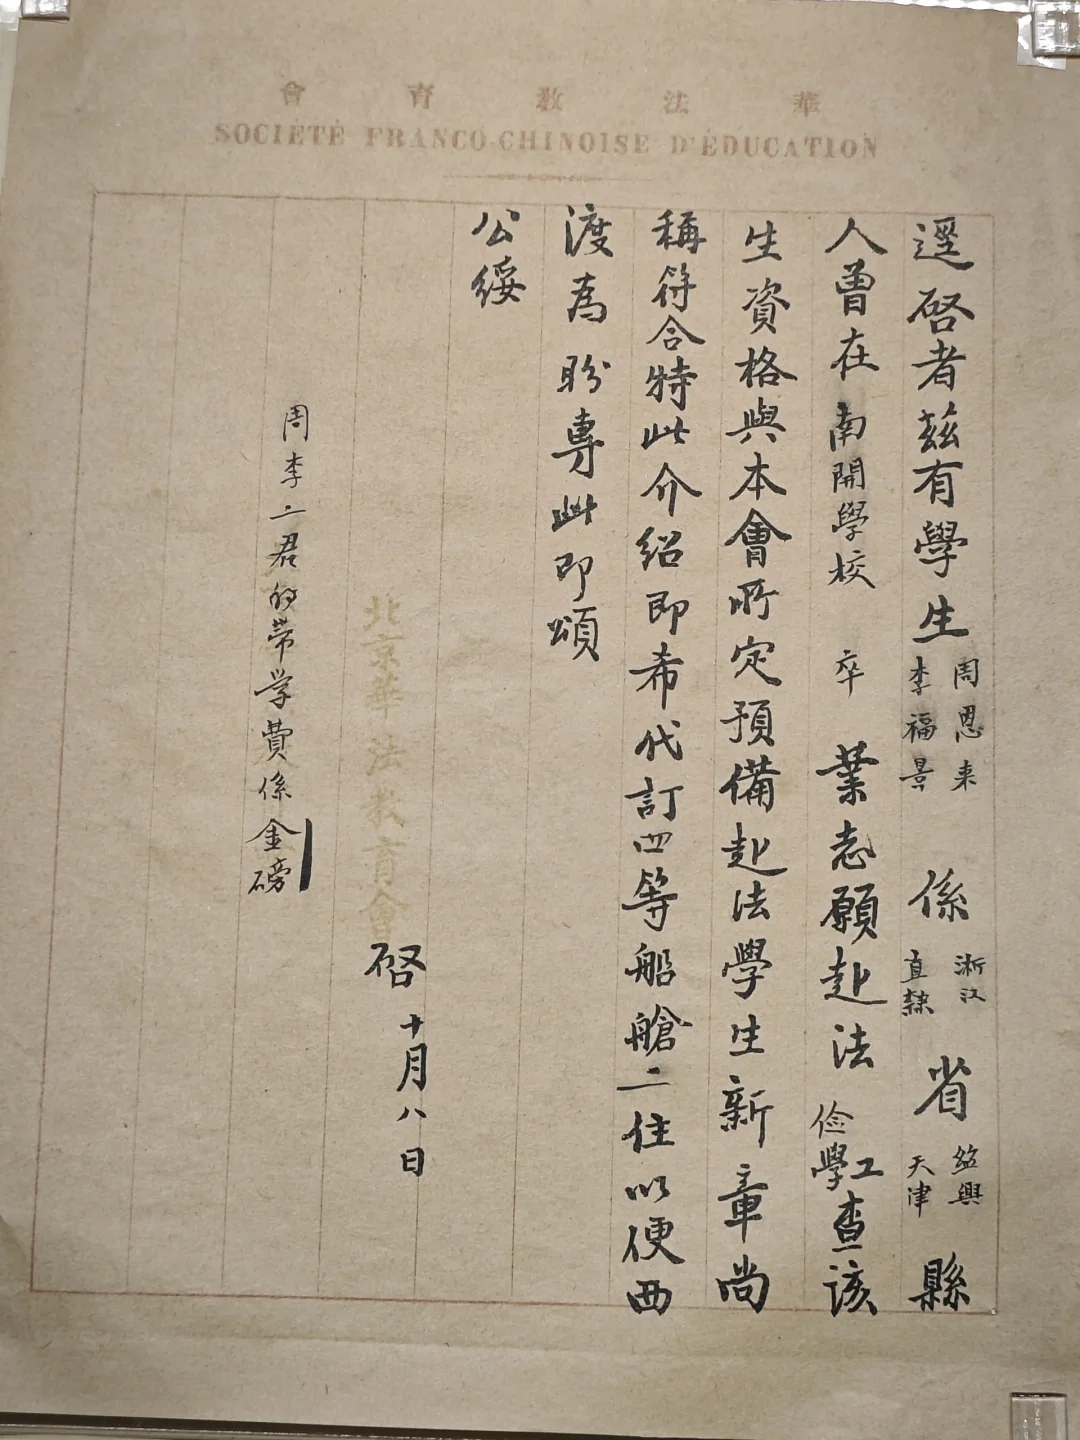 會育教法華
SOCIÉTÉ FRANCO-CHINOISE D'ÉDUCATION
逕啓者茲有學生周恩来李福景係浙江直隸省紹興天津縣
人曾在南開學校卒業志願赴法儉學工查該
生資格與本會所定預備赴法學生新章尚
稱符合特此介紹即希代訂四等船艙二住以便西
渡為盼專此即頌
公綏
北京華法教育會啓十月八日
周李二君的带学費係金磅